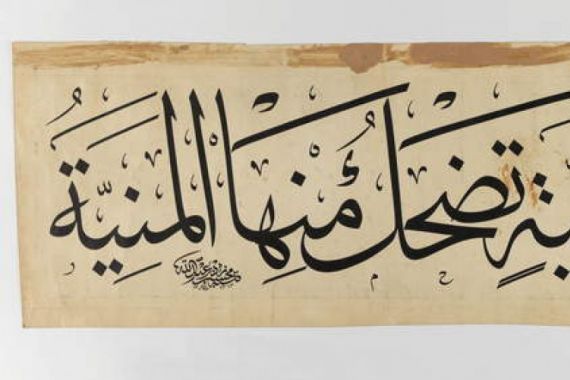 تضحك منها المنيّة